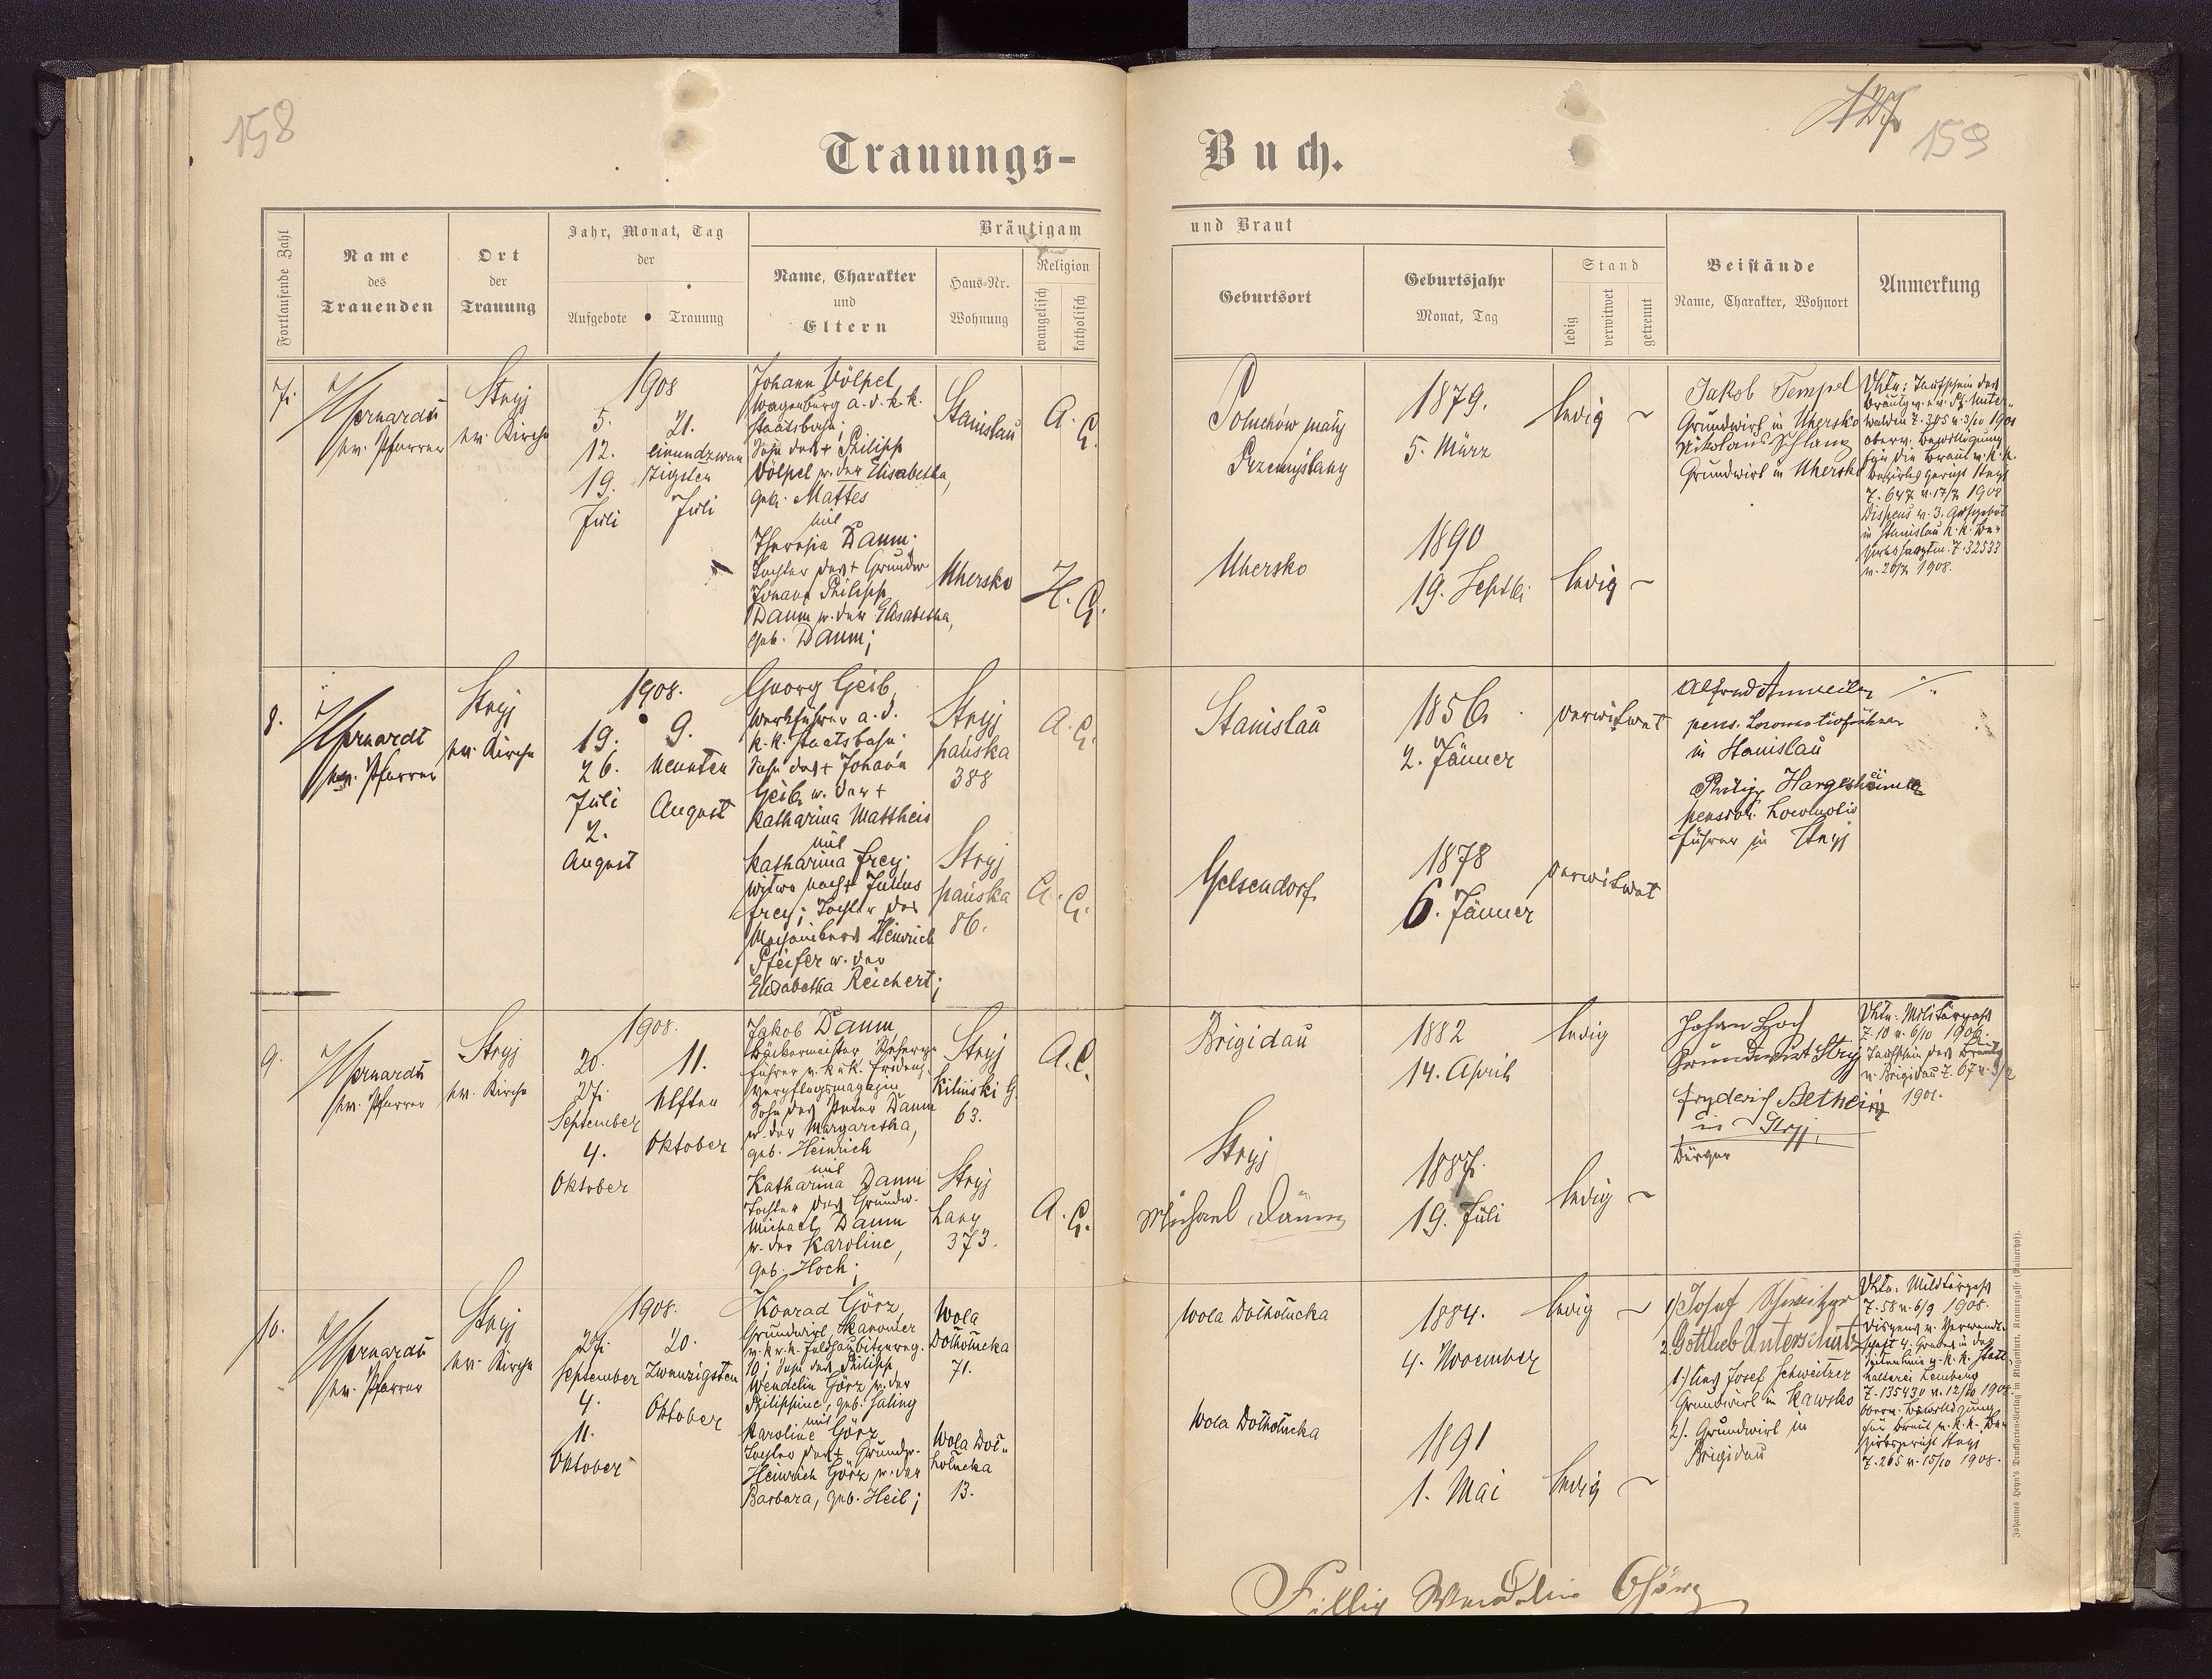 158
Trauungs-
Buch.
127
159
Fortlaufende Zahl
Name
des
Trauenden
Ort
der
Trauung
Jahr, Monat, Tag
der
Aufgebote
Trauung
Bräutigam
Name, Charakter
und
Eltern
Haus-Nr.
Wohnung
Religion
evangelisch
katholisch
und Braut
Geburtsort
Geburtsjahr
Monat, Tag
Stand
ledig
verwitwet
getrennt
Beistände
Name, Charakter, Wohnort
Anmerkung
7.
ev. Pfarrer
Stryj
ev. Kirche
1908
5.
12.
19.
Juli
21.
einundzwan
zigsten
Juli
Johann Völpel,
a. d. k. k.
Staatsbahn;
Sohn des + Philipp
Völpel u. der Elisabetha,
geb. Mattes
mit
Theresia Daum.
Tochter des + Grundw.
Johann Philipp
Daum u. der Elisabetha,
geb. Daum;
Stanislau
A. C.
Uhersko
H. C.
Poluchów maly
Przemyslany
1879.
5. März
ledig
Uhersko
1890
19. Septb.
ledig
Jakob Tempel
Grundwirt in Uhersko
Nikolaus Schlanz
Grundwirt in Uhersko
Taufschein des
Bräutg. v. ev. Pf. Unter-
walden Z. 305 v. 3/10 1901
oberv. Bewilligung
für die Braut v. k. k.
Bezirks Gericht Stryj
Z. 647 v. 17/7 1908
Dispens v. 3. Aufgebot
in Stanislau k. k. Be-
zirkshauptm. Z. 32533
v. 20/7 1908.
8.
ev. Pfarrer
Stryj
ev. Kirche
1908.
19.
26.
Juli
2.
August
9.
neunten
August
Georg Geib,
Werkführer a. d.
k. k. Staatsbahn;
Sohn des + Johann
Geib u. der +
Katharina Mattheis
mit
Katharina Frey;
Witwe nach + Julius
Frey; Tochter des
Heinrich
Pfeifer u. der
Elisabetha Reichert;
Stryj
pańska
388
A. C.
Stryj
pańska
86.
A. C.
Stanislau
1856
2. Jänner
verwitwet
Gelsendorf
1878
6. Jänner
verwitwet
Alfred Anweiler
pens. Locomotivführer
in Stanislau
Philipp Hargesheimer
pension. Locomotiv
führer in Stryj
9.
ev. Pfarrer
Stryj
ev. Kirche
1908.
20.
27.
September
4.
Oktober
11.
elften
Oktober
Jakob Daum,
Bäckermeister
führer
Verpflegsmagazin
Sohn des Peter Daum
u. der Margaretha,
geb. Heinrich
mit
Katharina Daum
Tochter des Grundw.
Michael Daum
u. der Karoline,
geb. Hoch;
Stryj
Kilinski G.
63.
A. C.
Stryj
Lany
373.
A. C.
Brigidau
1882
14. April
ledig
Stryj
Michael Daum
1887.
19. Juli
ledig
Johan Hoch
Grundwirt Stryj
Fryderich Betheim
in Stryj
Bürger
Militärpaß
Z. 10 v. 6/10 1906.
Taufschein des Bräutg.
v. Brigidau Z. 67 v. 3/2
1901.
10.
ev. Pfarrer
Stryj
ev. Kirche
1908.
27.
September
4.
11.
Oktober
20.
Zwanzigsten
Oktober
Konrad Görz,
Grundwirt, Kanonier
Sohn des Philipp
Wendelin Görz u. der
Philippine, geb. Jaling
mit
Karoline Görz
Tochter des + Grundw.
Heinrich Görz u. der
Barbara, geb. Heil;
Wola
Dołhołucka
71.
Wola Doł-
hołucka
13.
Wola Dołhołucka
1884.
4. November
ledig
Wola Dołhołucka
1891
1. Mai
ledig
1) Josef Schweitzer
2. Gottlieb Unterschütz
1.) Josef Schweitzer
Grundwirt in Kawsko
2). Grundwirt in
Brigidau
Militärpaß
Z. 58 v. 6/9 1908.
Dispens v. Verwandt-
schaft 4. Grades in der
Seitenlinie v. k. k. Statt-
halterei Lemberg
Z. 135430 v. 12/10 1908.
Oberv. Bewilligung
für Braut v. k. k. Be-
zirksgericht Stryj
Z. 265 v. 15/10 1908.
Johannes Heyn's Drucksorten-Verlag in Klagenfurt, Kramergasse
Fillip Wendelin Görz